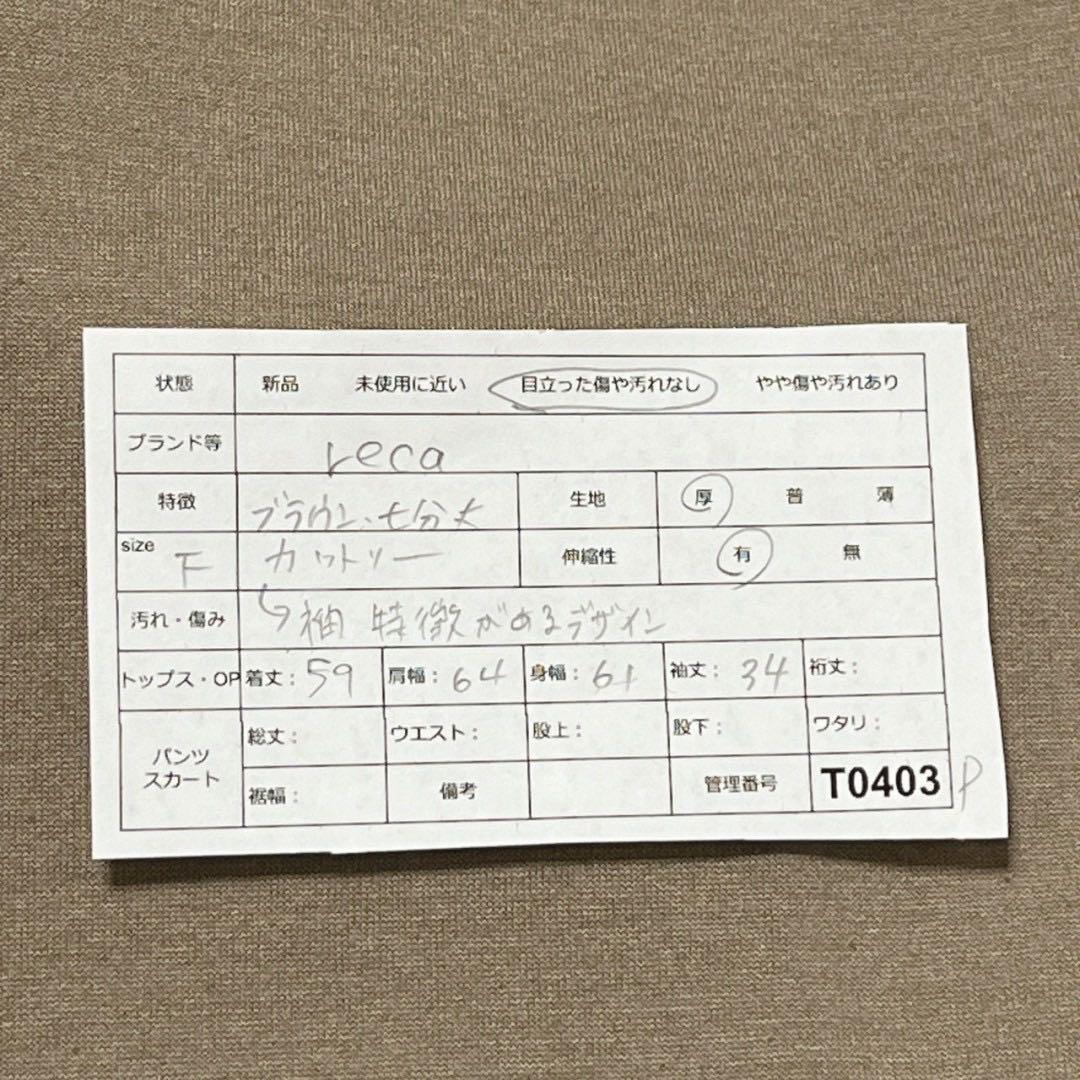 状態 新品 未使用に近い 目立った傷や汚れなし やや傷や汚れあり
ブランド等 reca
特徴 ブラウン、七分丈 生地 厚 普 薄
size F カットソー 伸縮性 有 無
汚れ・傷み ↳袖 特徴があるデザイン
トップス・OP 着丈：59 肩幅：64 身幅：61 袖丈：34 裄丈：
パンツ スカート 総丈： ウエスト： 股上： 股下： ワタリ：
裾幅： 備考 管理番号 T0403 P